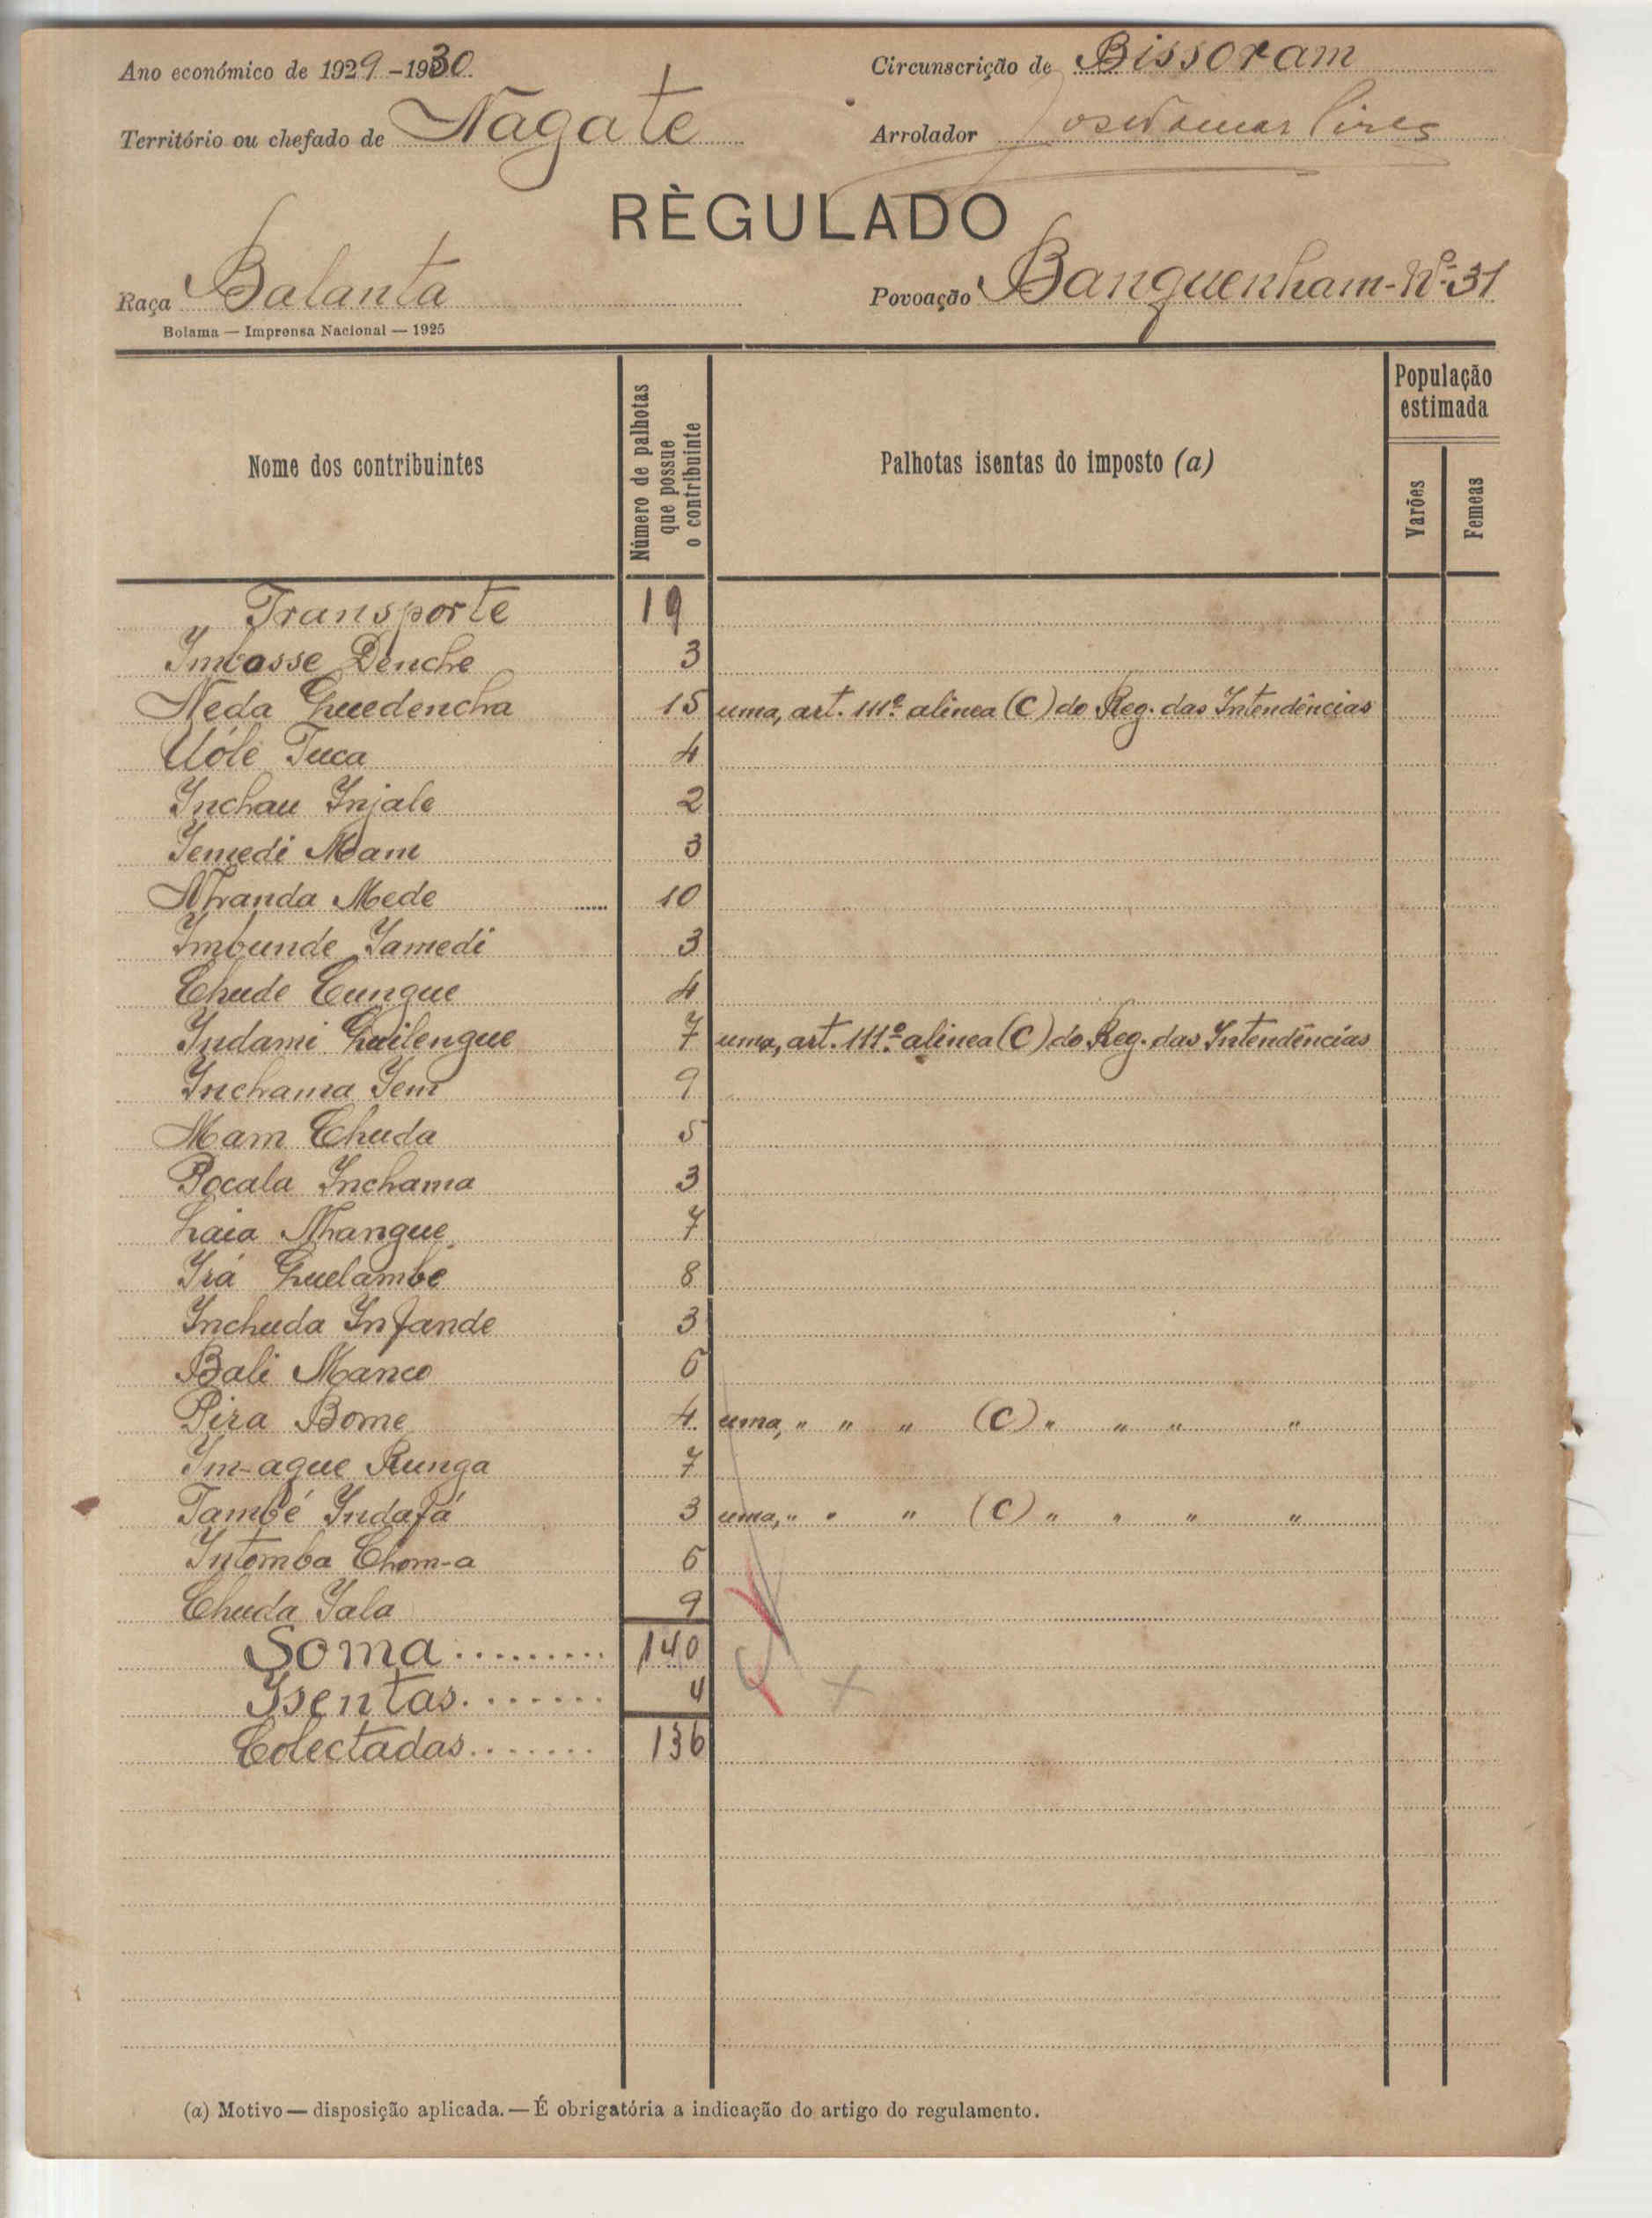 Ano económico de 1929-1930
Circunscrição de Bissoram
Território ou chefado de Nagate
Arrolador Pires
RÈGULADO
Raça Balanta
Povoação Banquenham-Nº-31
Bolama — Imprensa Nacional — 1925
Nome dos contribuintes
Número de palhotas que possue o contribuinte
Palhotas isentas do imposto (a)
População estimada
Varões
Femeas
„ Transporte 19
Imbosse Denche 3
Neda Quedencha 15 uma, art. 111º alinea (C) do Reg. das Intendências
Uólé Tuca 4
Inchau Injale 2
Iemedi Mam 3
Nhanda Mede 10
Imbunde Iamedi 3
Chude Cungue 4
Indami Quilengue 7 uma, art. 111º alinea (C) do Reg. das Intendências
Inchama Iem 9
Mam Chuda 5
Pocala Inchama 3
Laia Nhangue 7
Irá Quelambé 8
Inchuda Infande 3
Bali Manco 6
Pira Bome 4 uma, „ „ „ (C) „ „ „ „
Im-ague Runga 7
També Indafá 3 uma, „ „ „ (C) „ „ „ „
Intomba Chom-a 6
Chuda Iala 9
Soma ......... 140
Isentas. ...... 4
Colectadas ....... 136
(a) Motivo — disposição aplicada. — É obrigatória a indicação do artigo do regulamento.